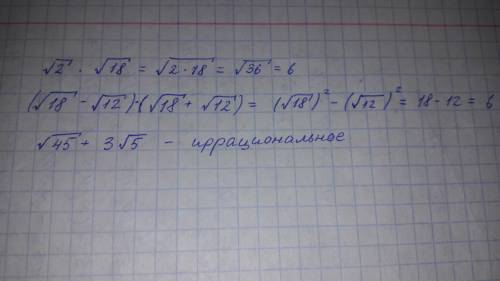 √2 · √18 = √2·18 = √36 = 6
(√18 - √12)·(√18 + √12) = (√18)² - (√12)² = 18 - 12 = 6
√45 + 3√5 - иррациональное